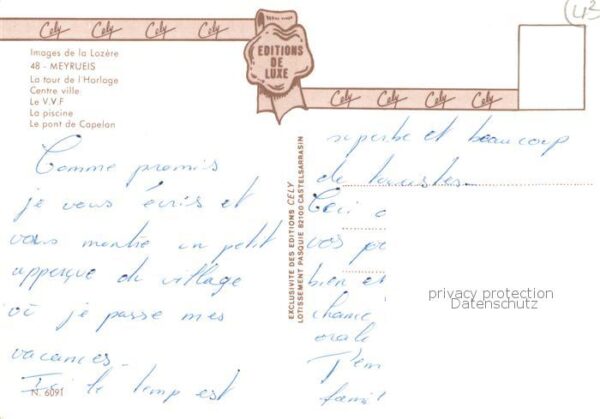 43
Cely Cely Cely Cely
EDITIONS
DE
LUXE
Cely Cely Cely Cely
Images de la Lozère
48 - MEYRUEIS
La tour de l'Horloge
Centre ville
Le V.V.F
La piscine
Le pont de Capelan
Comme promis
je vous écris et
vous montre un petit
apperçue du village
où je passe mes
vacances.
Ici le temp est
N. 6091
EXCLUSIVITE DES EDITIONS CELY
LOTISSEMENT PASQUIE 82100 CASTELSARRASIN
superbe et beaucoup
de touristes...
Ceci
vos
bien et
chance
orale
famil
privacy protection
Datenschutz